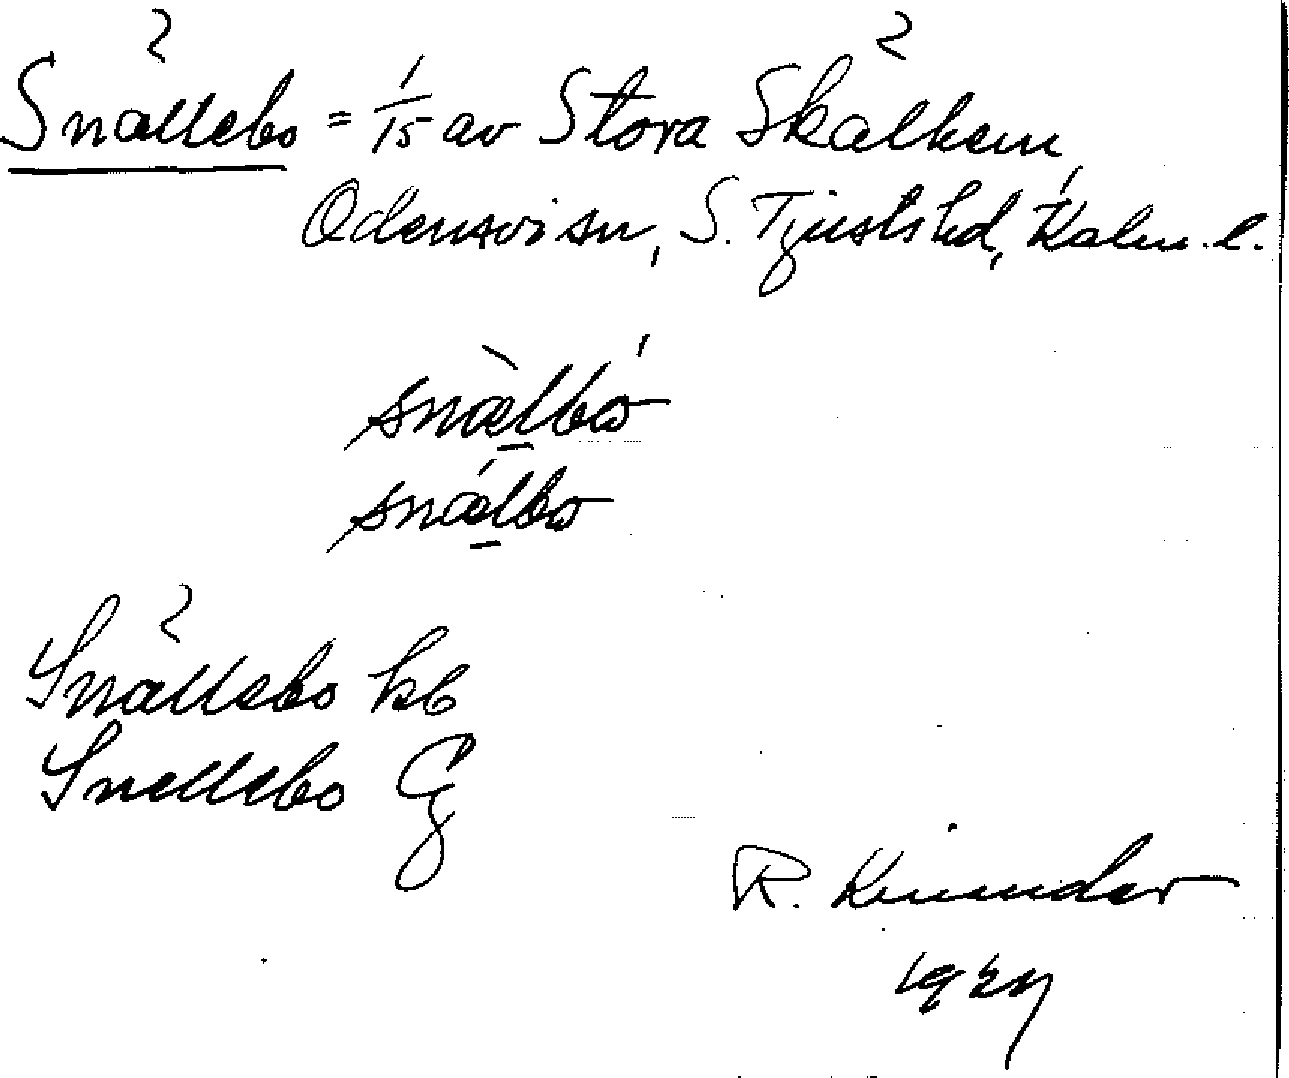 Snällebo = 1/15 av Stora Skälhem,
Odensvi sn, S. Tjusts hd, Kalm. l.
snæ̀lbó
snǽlbo
Snällebo kb
Snellebo Cg
R. Kinander
1927